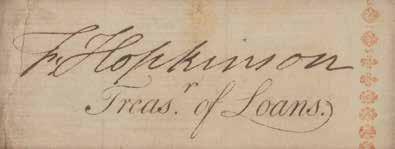 Fs Hopkinson
Treas.r of Loans.